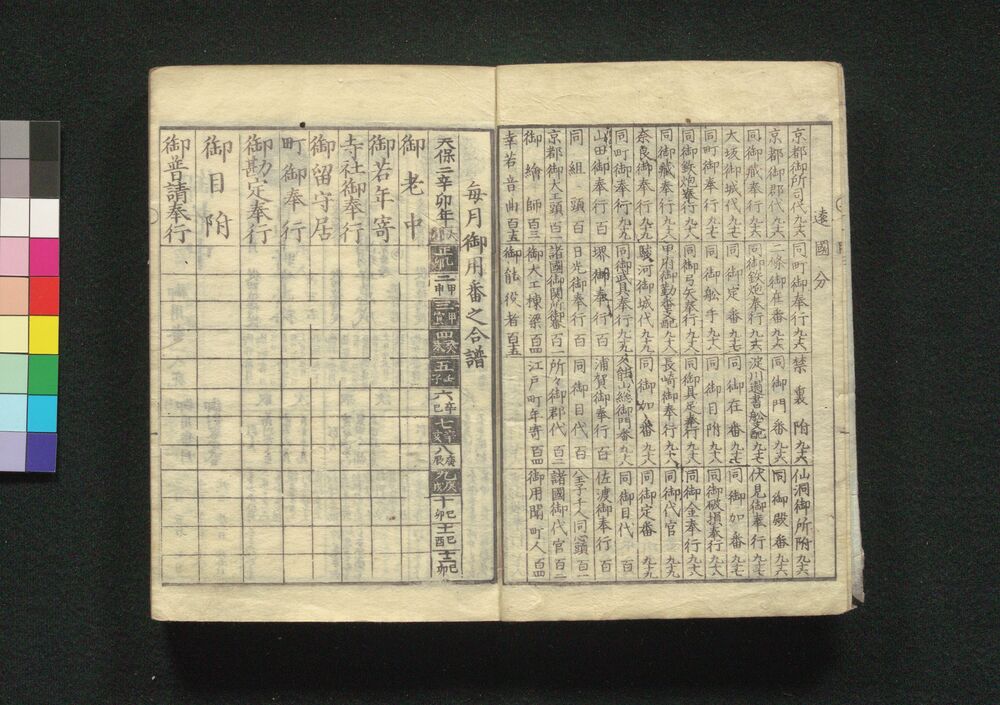 遠國分
京都御所司代 九十六 同町御奉行 九十六 禁裏附 九十六 仙洞御所附 九十六
京都御郡代 九十六 二條御在番 九十六 同御門番 九十六 同御殿番 九十六
同御藏奉行 九十六 同御鉄炮奉行 九十六 淀川過書舩支配 九十七 伏見御奉行 九十七
大坂御城代 九十七 同御定番 九十七 同御在番 九十七 同御加番 九十七
同町御奉行 九十八 同御舩手 九十八 同御目附 九十八 同御破損奉行 九十八
同御鉄炮奉行 九十八 同御弓矢奉行 九十八 同御具足奉行 九十八 同御金奉行 九十八
同御藏奉行 九十八 甲府御勤番支配 九十八 長崎御奉行 九十八 同御代官 九十九
奈良御奉行 九十九 駿河御城代 九十九 同御加番 九十九 同御定番 九十九
同町御奉行 九十九 同御武具奉行 九十九 久能山総御門番 九十八 同御目代 百
山田御奉行 百 堺御奉行 百 浦賀御奉行 百 佐渡御奉行 百
同組頭 百 日光御奉行 百 同御目代 百 千人同心頭 百一
京都御大工頭 百二 諸國御関所御番 百二 所々御郡代 百二 諸國御代官 百二
御繪師 百三 御大工棟梁 百四 江戸町年寄 百四 御用聞町人 百四
幸若音曲 百十五 御能役者 百十五
毎月御用番之合譜
天保二辛卯年 正 二 三 四 五 六 七 八 九 十 十一 十二
御老中
御若年寄
寺社御奉行
御留守居
町御奉行
御勘定奉行
御目附
御普請奉行